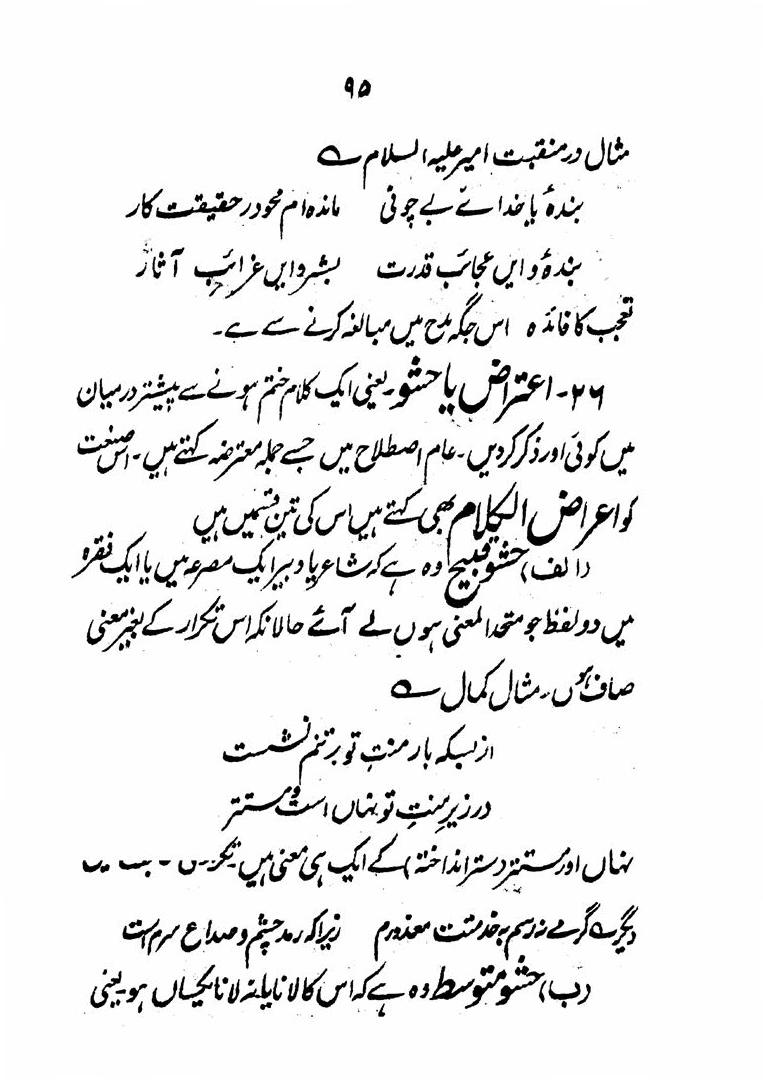 ۹۵
مثال در منقبت امیر علیہ السلام ؎
بندۂ یا خدائے بے چونی ماندہ ام محو در حقیقت کار
بندۂ و ایں عجائب قدرت بشر و ایں غرائب آثار
تعجب کا فائدہ اس جگہ مدح میں مبالغہ کرنے سے ہے۔
۲۶۔ اعتراض یا حشو۔ یعنی ایک کلام ختم ہونے سے پیشتر درمیان
میں کوئی اور ذکر کر دیں۔ عام اصطلاح میں جسے جملہ معترضہ کہتے ہیں۔ اس صنعت
کو اعراض الکلام بھی کہتے ہیں اس کی تین قسمیں ہیں
(الف) حشو قبیح وہ ہے کہ شاعر یا دبیر ایک مصرعہ میں یا ایک فقرہ
میں دو لفظ جو متحد المعنی ہوں لے آئے حالانکہ اس تکرار کے بغیر معنی
صاف ہوں۔ مثال کمال ؎
از بسکہ بار منت تو بر تنم نشست
در زیر منت تو نہاں است و مستتر
نہاں اور مستتر (ستر انداختہ) کے ایک ہی معنی ہیں
دیگر ؎ گر مے نہ رسم بہ خدمتت معذورم زیرا کہ رمد چشم و صداع سرم است
(ب) حشو متوسط وہ ہے کہ اس کا لانا یا نہ لانا یکساں ہو۔ یعنی